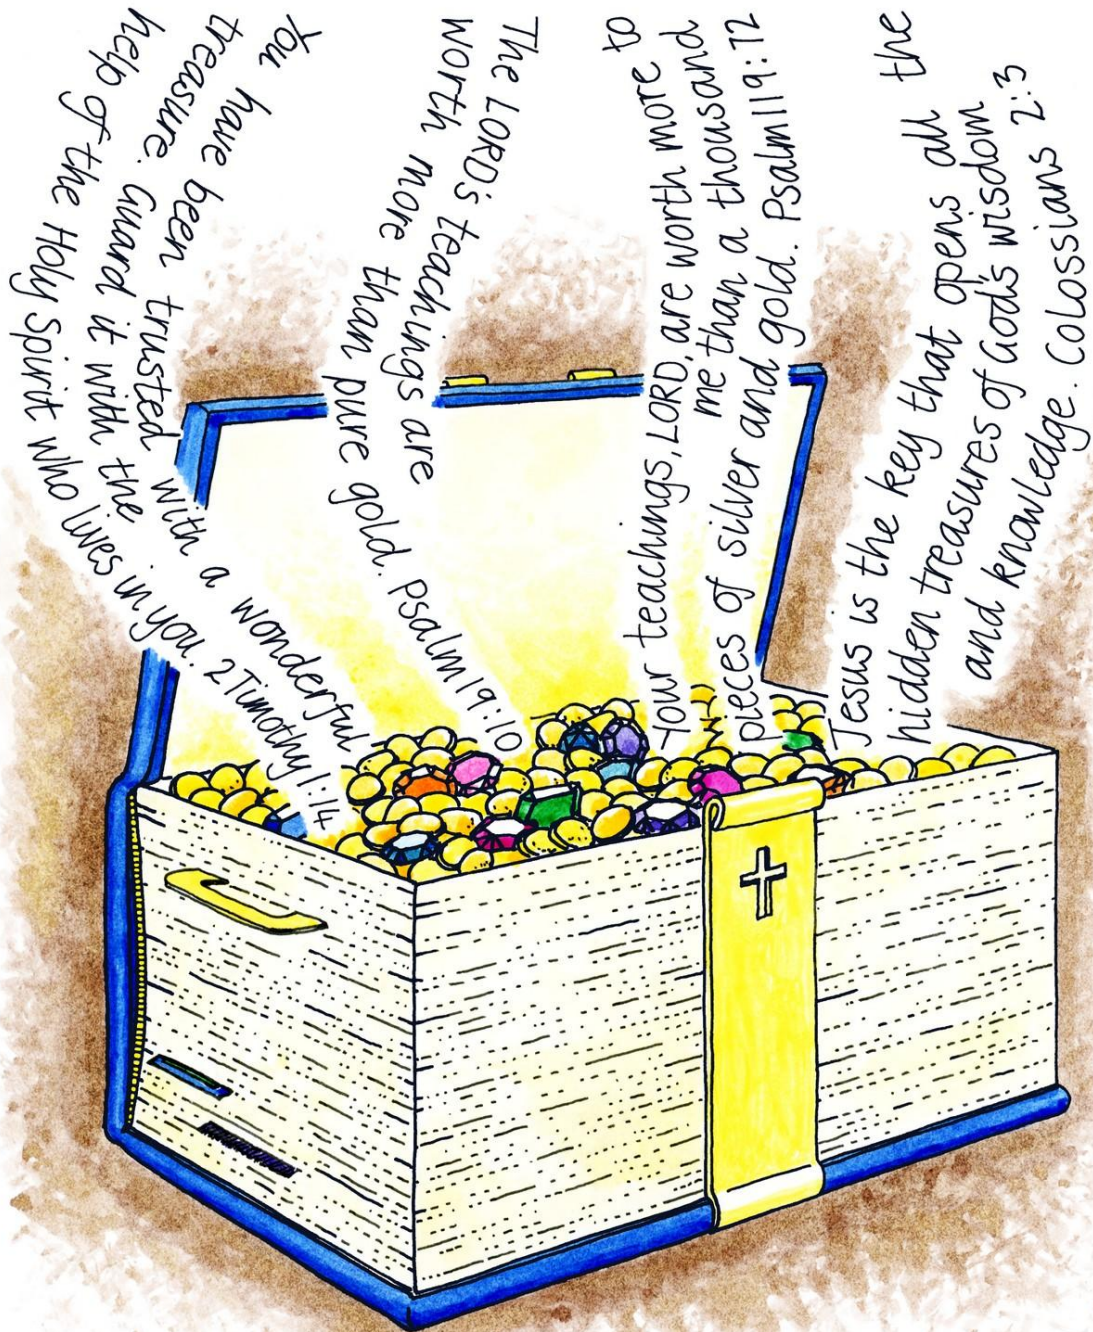 You have been trusted with a wonderful
treasure. Guard it with the
help of the Holy Spirit who lives in you. 2 Timothy 1:14
The LORD's teachings are
worth more than pure gold. Psalm 19:10
Your teachings, LORD, are worth more to
me than a thousand
pieces of silver and gold. Psalm 119:72
Jesus is the key that opens all the
hidden treasures of God's wisdom
and knowledge. Colossians 2:3